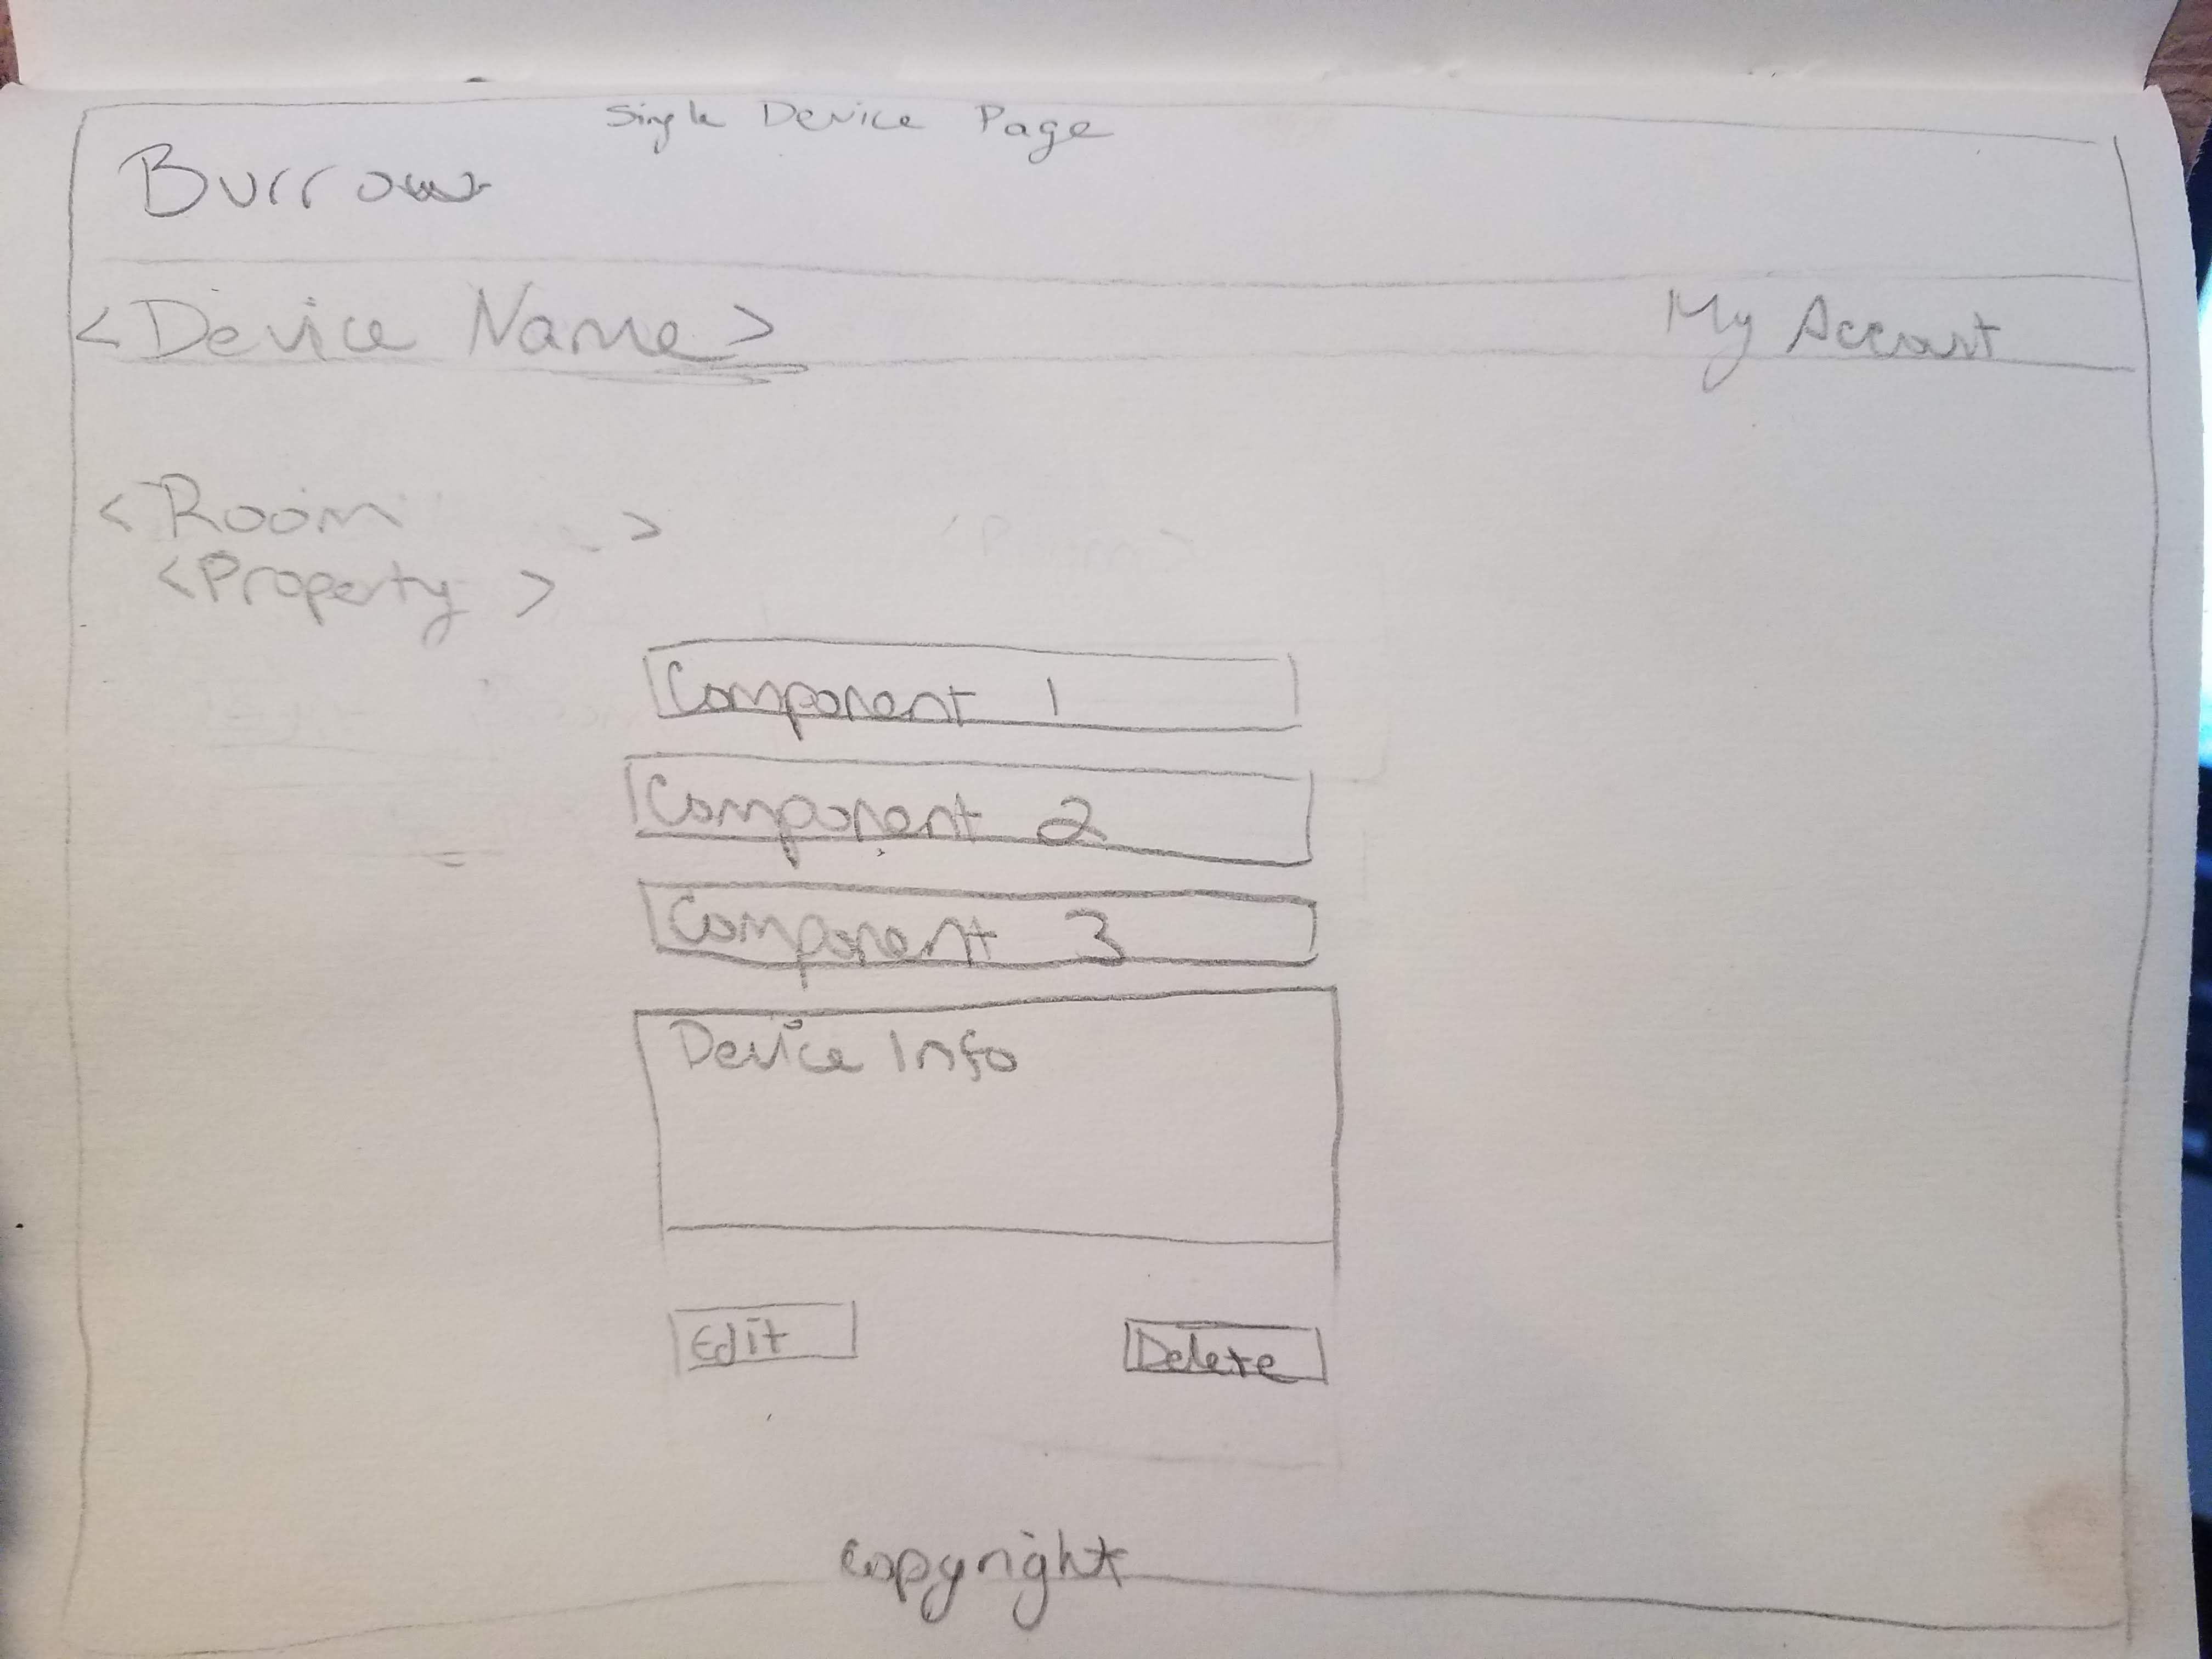 Single Device Page
Burrow
<Device Name>
My Account
<Room >
<Property >
Component 1
Component 2
Component 3
Device Info
Edit
Delete
copyright